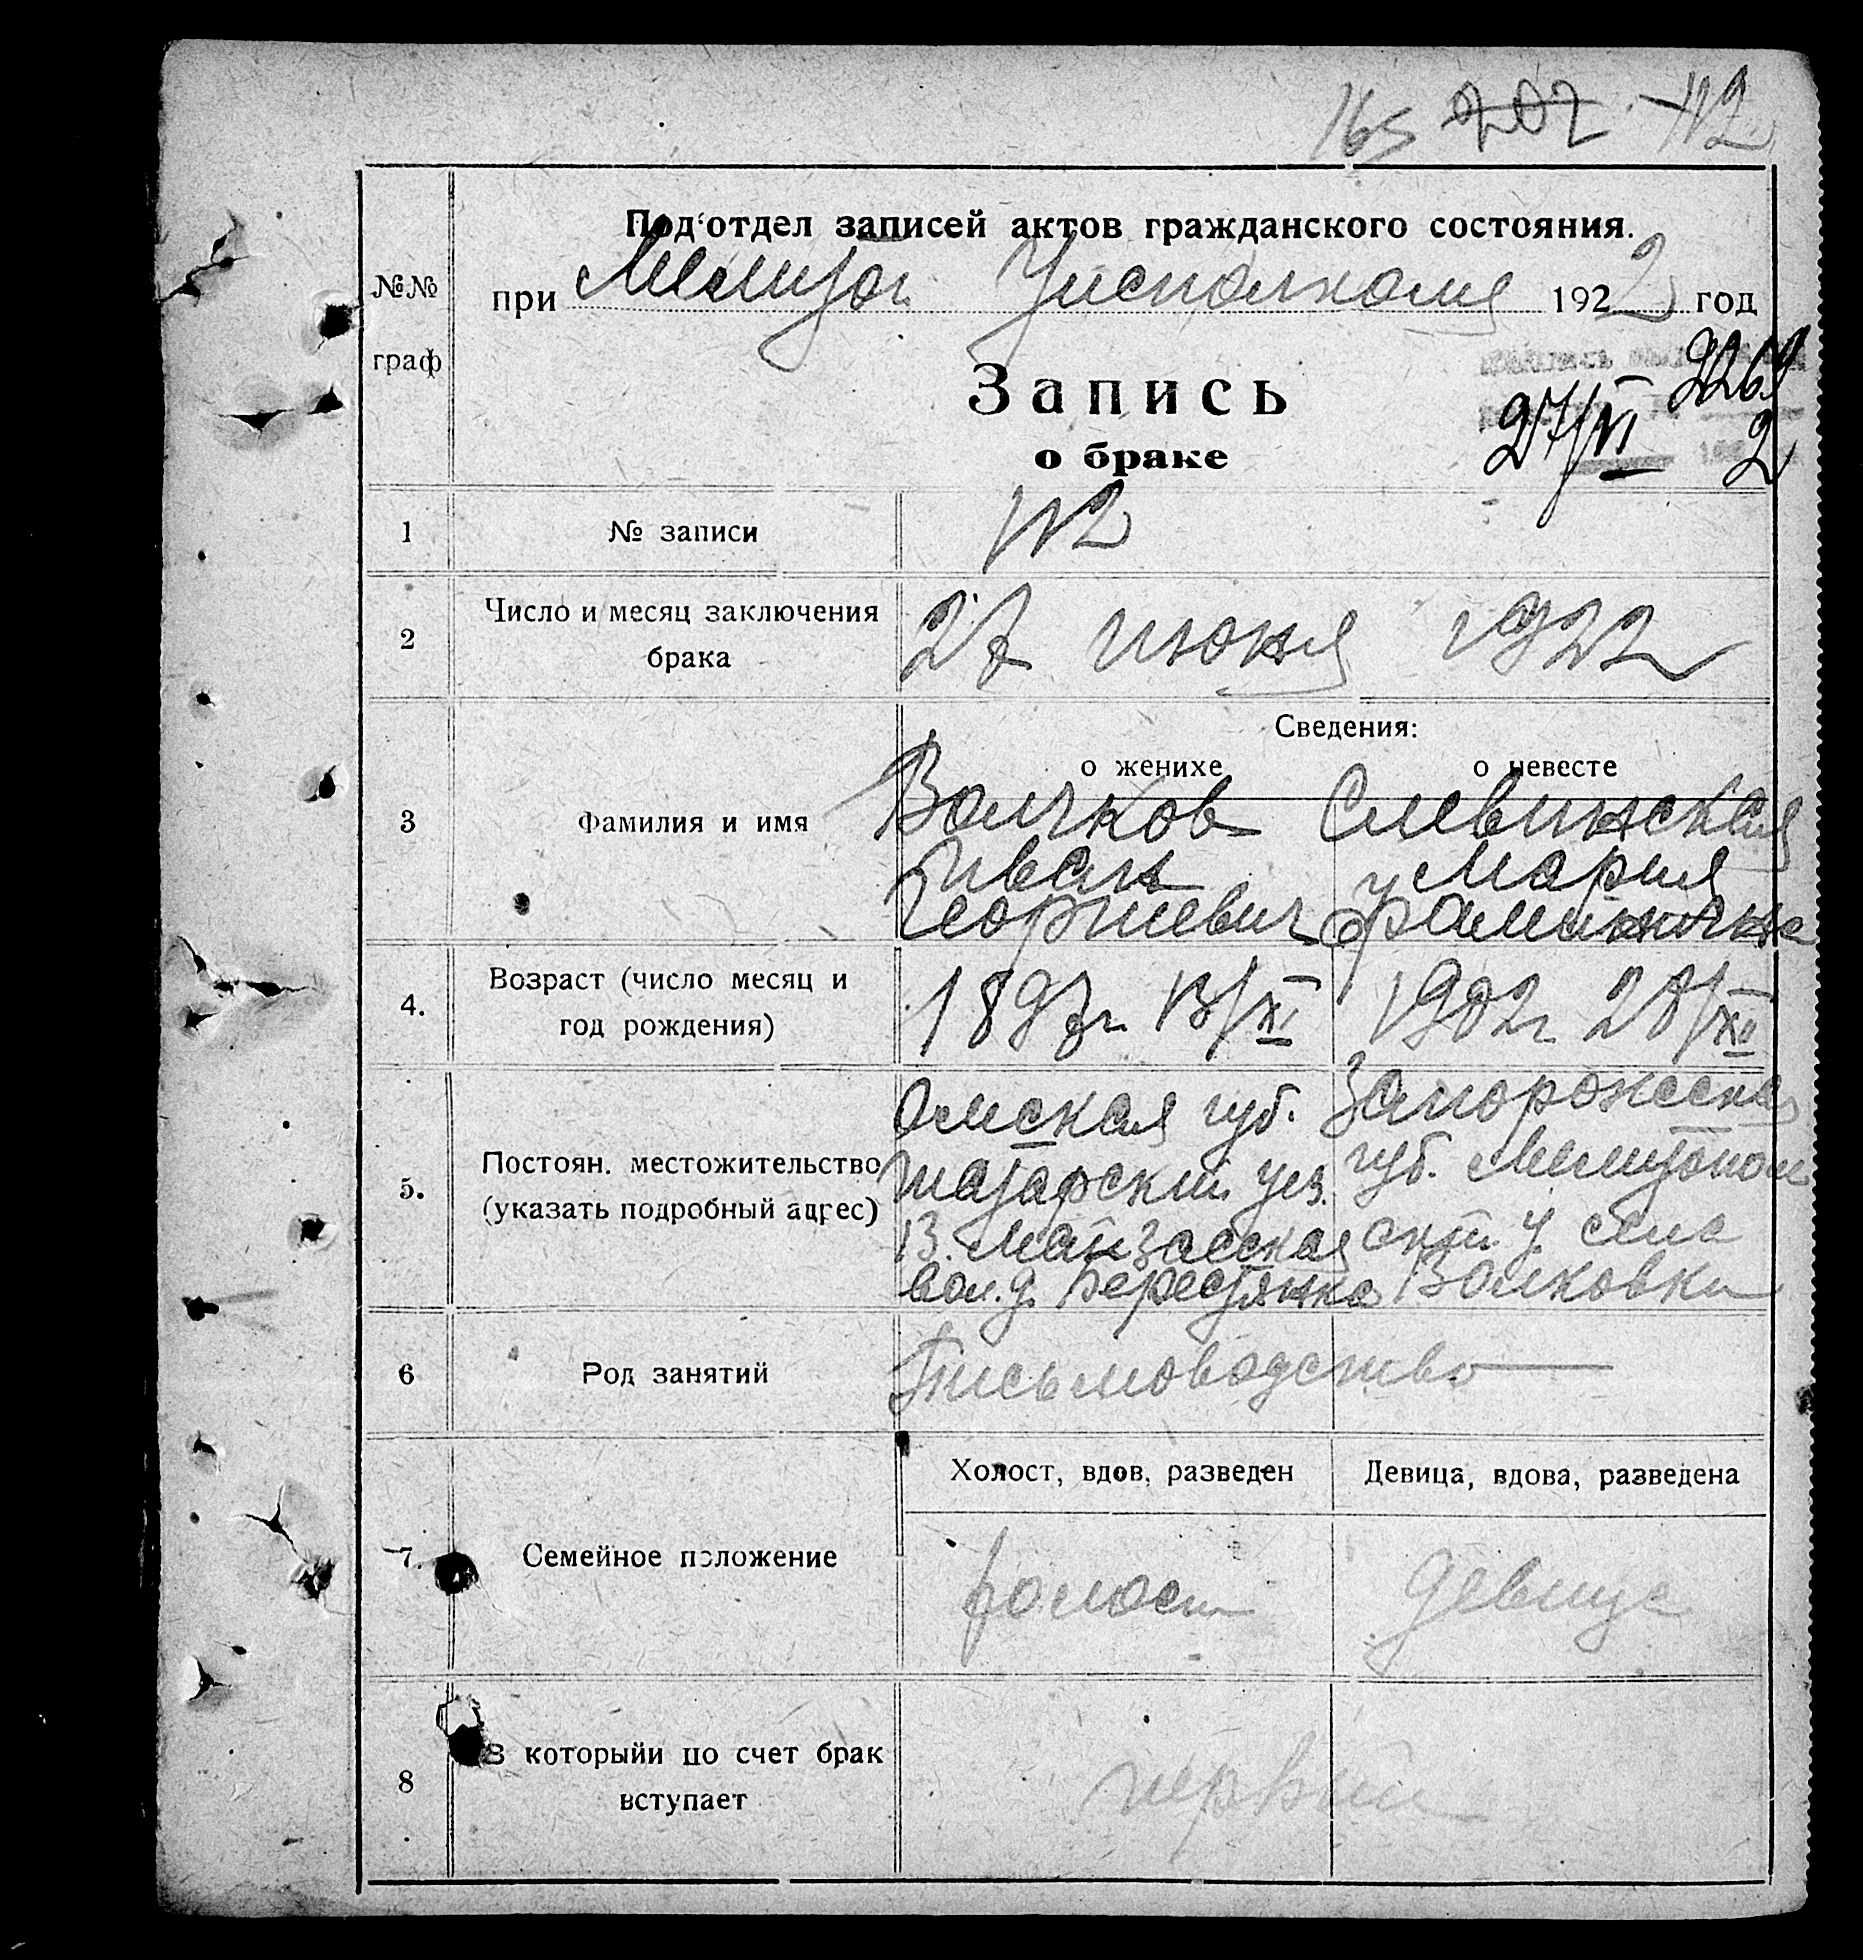 165 202 112
Под'отдел записей актов гражданского состояния.
№№ граф
при Мелитоп. Уисполкоме 1922 год
Запись
о браке
27/VI
2
1 № записи 112
2 Число и месяц заключения
брака
27 июня 1922
Сведения:
о женихе о невесте
3 Фамилия и имя
Волчков Слевинская
Иван Мария
Георгиевич
4. Возраст (число месяц и
год рождения)
1897г. 13/XI 1902г. 28/XII
5. Постоян. местожительство
(указать подробный адрес)
Омская губ. Запорожская
Татарский уез. губ. Мелитопол
окт. у. села
вол. д. Берестянка Волковки
6 Род занятий Письмоводство
Холост, вдов, разведен Девица, вдова, разведена
7. Семейное положение холост девица
8 В которыйи по счет брак
вступает
первый